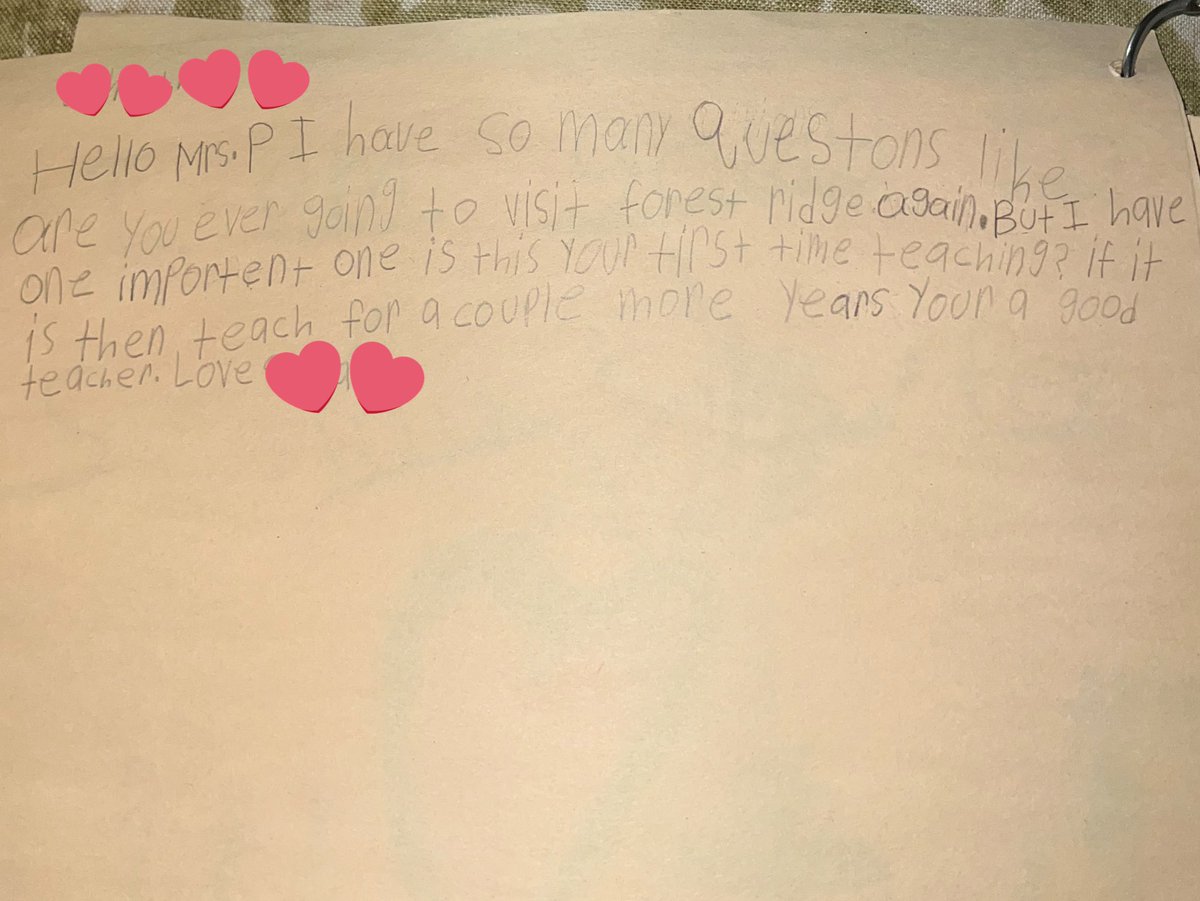 Hello Mrs. P I have so many questons like
are you ever going to visit forest ridge again. But I have
one importent one is this your first time teaching? if it
is then teach for a couple more years your a good
teacher. Love